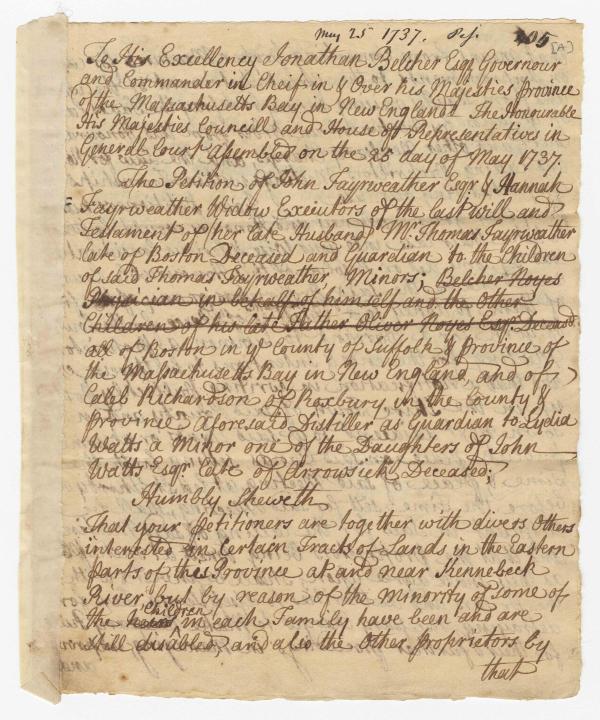 May 25 1737. Pet. 405 [A]
To His Excellency Jonathan Belcher Esqr Governour
and Commander in Cheif in & Over his Majesties Province
of the Massachusetts Bay in New England The Honourable
His Majesties Councill and House of Representatives in
General Court Assembled on the 25 day of May 1737.
The Petition of John Fayrweather Esqr & Hannah
Fayrweather Widow Executors of the last will and
Testament of (her late Husband) Mr Thomas Fayrweather
late of Boston Deceased and Guardian to the Children
of said Thomas Fayrweather Minors; Belcher Noyes
Physician in behalf of himself and the Other
Children of his late Father Oliver Noyes Esqr Deceasd
all of Boston in ye County of Suffolk & Province of
the Massachusetts Bay in New England, and of
Caleb Richardson of Roxbury in the County &
Province Aforesaid Distiller as Guardian to Lydia
Watts a Minor one of the Daughters of John
Watts Esqr late of Arrowsick Deceased;
Humbly Sheweth
That your Petitioners are together with divers Others
interested in Certain Tracts of Lands in the Eastern
Parts of this Province at and near Kennebeck
River but by reason of the Minority of some of
the Children in each Family have been and are
still disabled, and also the Other Proprietors by
that